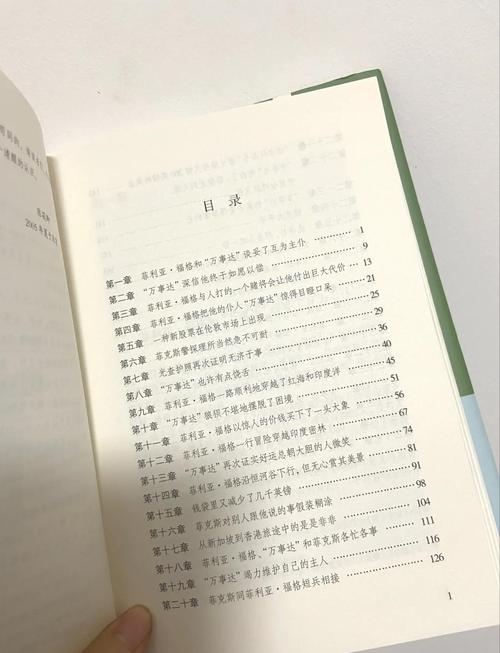 2005
目 录
第一章 菲利亚·福格和“万事达”谈妥了互为主仆 1
第二章 “万事达”深信他终于如愿以偿 9
第三章 菲利亚·福格与人打的一个赌将会让他付出巨大代价 13
第四章 菲利亚·福格把他的仆人“万事达”惊得目瞪口呆 21
第五章 一种新股票在伦敦市场上出现 25
第六章 菲克斯警探理所当然急不可耐 29
第七章 光查护照再次证明无济于事 36
第八章 “万事达”也许有点饶舌 40
第九章 菲利亚·福格一路顺利地穿越了红海和印度洋 45
第十章 “万事达”狼狈不堪地摆脱了困境 51
第十一章 菲利亚·福格以惊人的价钱买下了一头大象 56
第十二章 菲利亚·福格一行冒险穿越印度密林 67
第十三章 “万事达”再次证实好运总朝大胆的人微笑 74
第十四章 菲利亚·福格沿恒河谷下行，但无心赏其美景 81
第十五章 钱袋里又减少了几千英镑 91
第十六章 菲克斯对别人跟他说的事假装糊涂 98
第十七章 从新加坡到香港旅途中的是是非非 104
第十八章 菲利亚·福格、“万事达”和菲克斯各忙各事 111
第十九章 “万事达”竭力维护自己的主人 116
第二十章 菲克斯同菲利亚·福格短兵相接 126
1